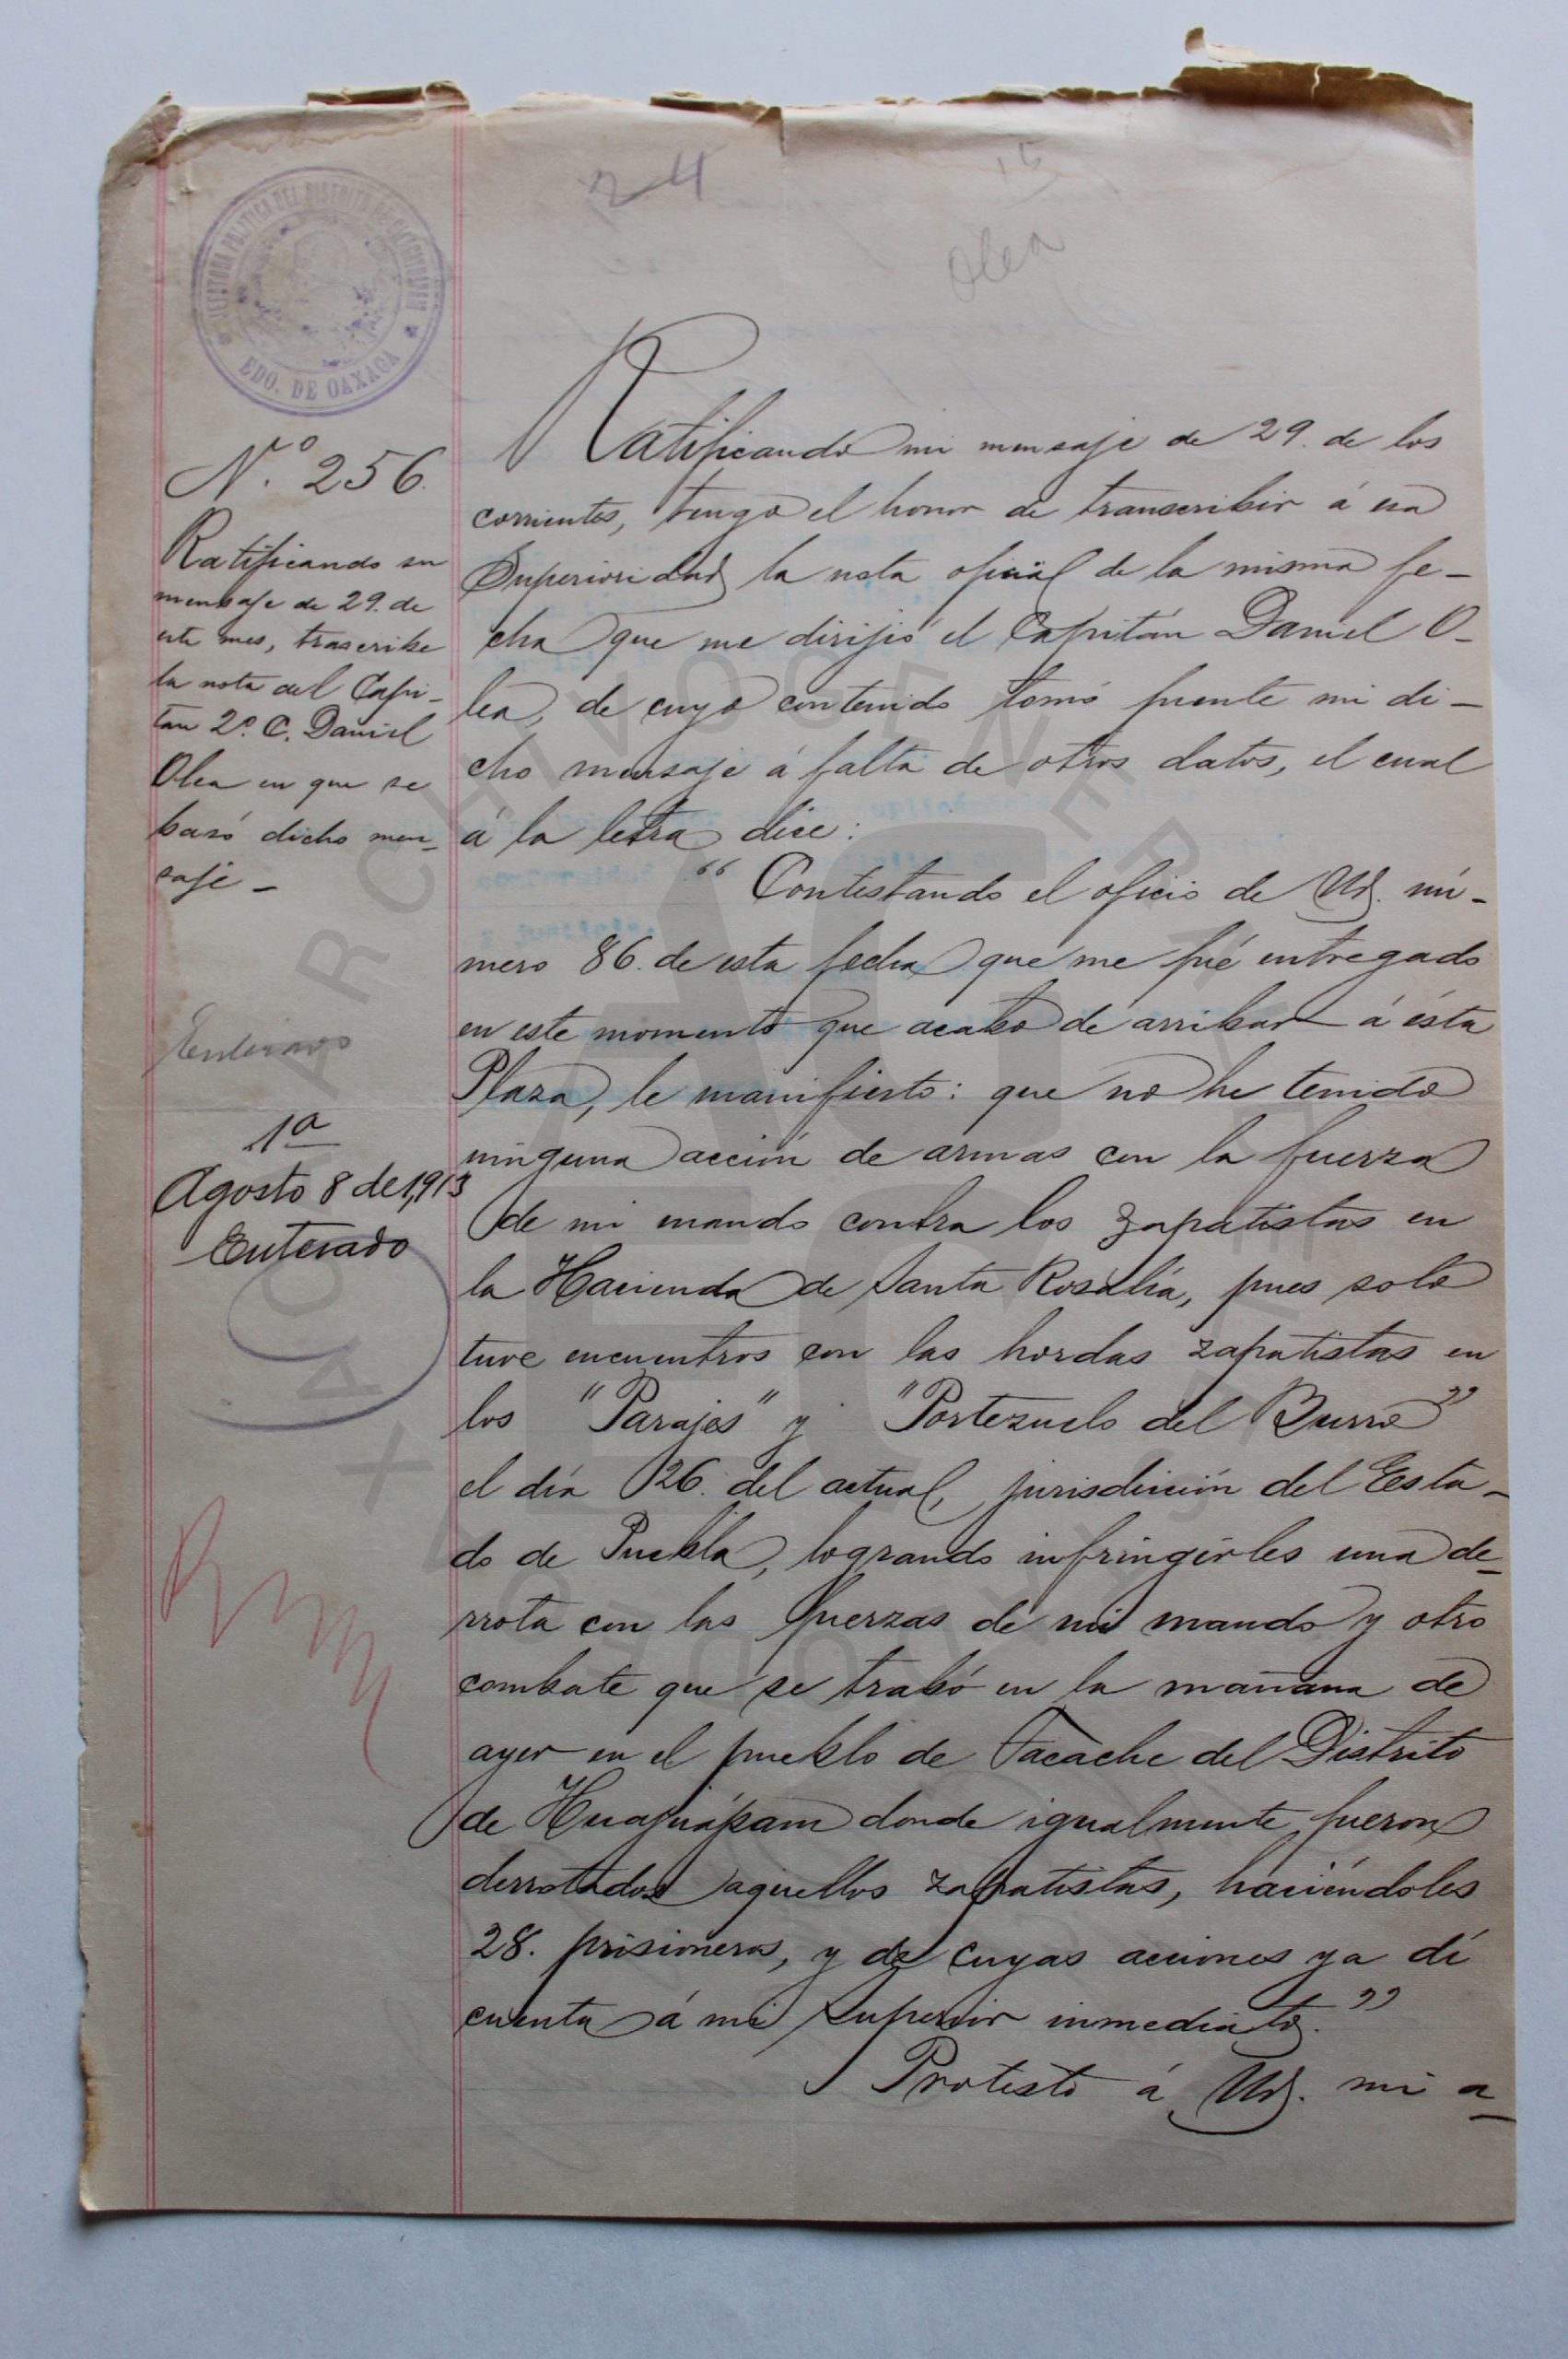 24
15
Olea
JEFATURA POLITICA DEL DISTRITO DE
EDO. DE OAXACA
N.º 256.
Ratificando su
mensaje de 29. de
este mes, trascribe
la nota del Capi-
tan 2º. C. Daniel
Olea en que se
basó dicho men-
saje -
Enterado
1ª
Agosto 8 de 1,913
Enterado
Ratificando mi mensaje de 29. de los
corrientes, tengo el honor de transcribir á esa
Superioridad la nota oficial de la misma fe-
cha que me dirijió el Capitán Daniel O-
lea, de cuyo contenido tomó fuente mi di-
cho mensaje á falta de otros datos, el cual
á la letra dice:
"Contestando el oficio de Ud. nú-
mero 86. de esta fecha que me fué entregado
en este momento que acabo de arribar á ésta
Plaza, le manifiesto: que no he tenido
ninguna acción de armas con la fuerza
de mi mando contra los zapatistas en
la Hacienda de Santa Rosalía, pues solo
tuve encuentros con las hordas zapatistas en
los "Parajes" y "Portezuelo del Burro"
el día 26. del actual, jurisdicción del Esta-
do de Puebla, logrando infringirles una de-
rrota con las fuerzas de mi mando y otro
combate que se trabó en la mañana de
ayer en el pueblo de Tacache del Distrito
de Huajuápam donde igualmente fueron
derrotados aquellos zapatistas, haciéndoles
28. prisioneros, y de cuyas acciones ya dí
cuenta á mi Superior inmediato."
Protesto á Ud. mi a-
ARCHIVO GENERAL
OAXACA